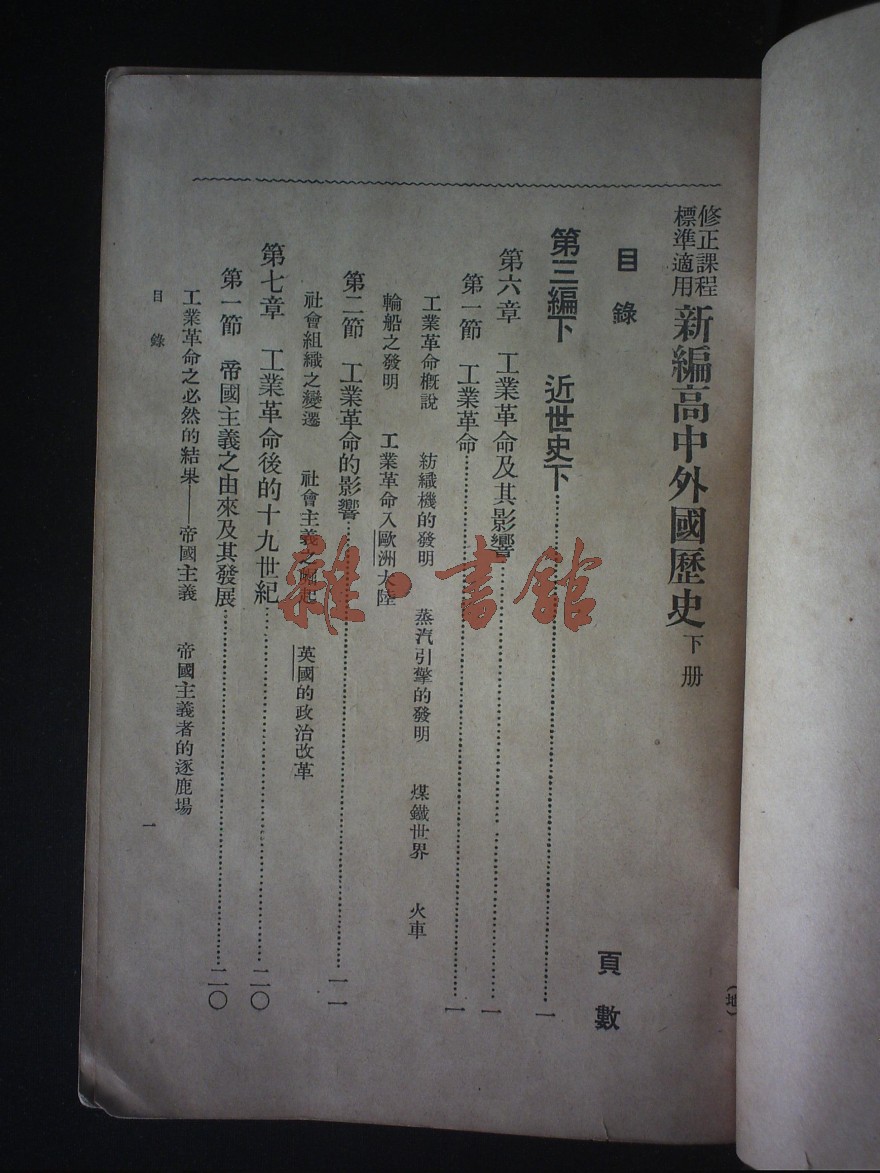 修正課程
標準適用
新編高中外國歷史 下册
目錄
頁數
第三編下 近世史下……一
第六章 工業革命及其影響……一
第一節 工業革命……一
工業革命概說 紡織機的發明 蒸汽引擎的發明 煤鐵世界 火車
輪船之發明 工業革命入歐洲大陸
第二節 工業革命的影響……一一
社會組織之變遷 社會主義之崛起 英國的政治改革
第七章 工業革命後的十九世紀……二〇
第一節 帝國主義之由來及其發展……二〇
工業革命之必然的結果——帝國主義 帝國主義者的逐鹿場
目錄
一
(地)
雜·書館